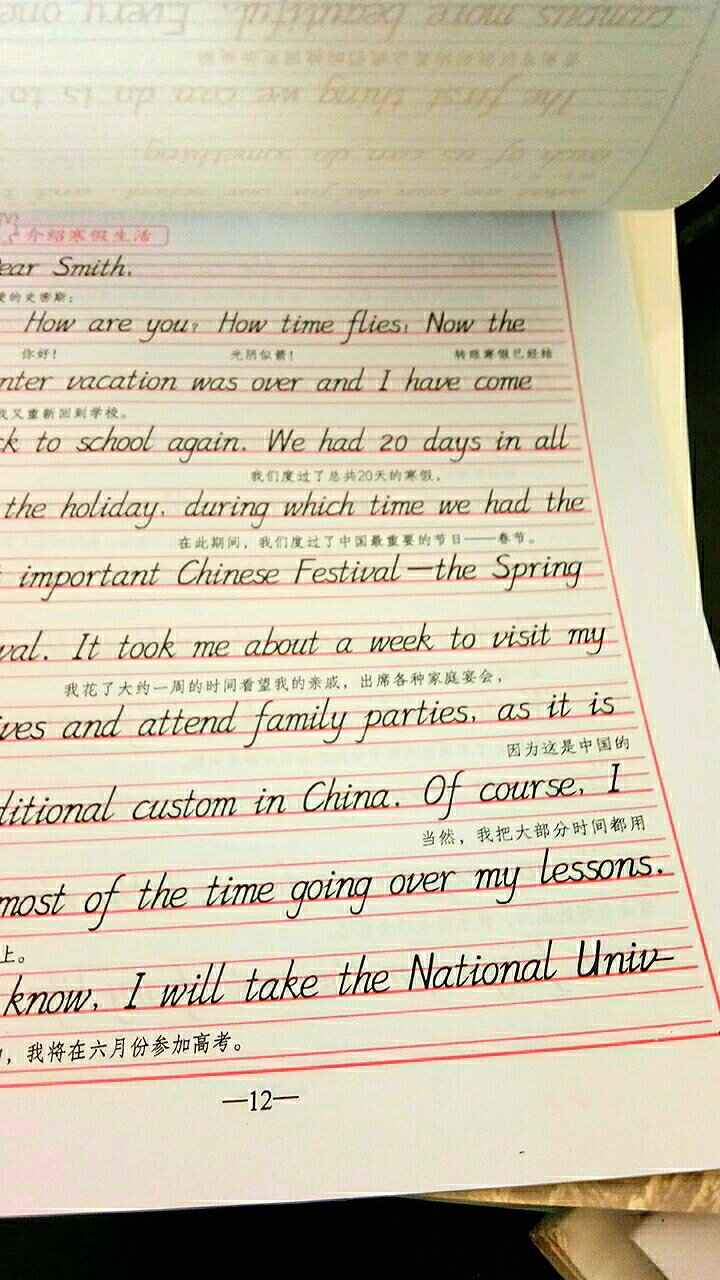 campus more beautiful. Every one
the first thing we can do is to
each of us can do something
介绍寒假生活
ear Smith,
爱的史密斯：
How are you? How time flies! Now the
你好！ 光阴似箭！ 转眼寒假已经结
nter vacation was over and I have come
我又重新回到学校。
ck to school again. We had 20 days in all
我们度过了总共20天的寒假，
the holiday, during which time we had the
在此期间，我们度过了中国最重要的节日——春节。
important Chinese Festival—the Spring
val. It took me about a week to visit my
我花了大约一周的时间看望我的亲戚，出席各种家庭宴会，
ives and attend family parties, as it is
因为这是中国的
ditional custom in China. Of course, I
当然，我把大部分时间都用
most of the time going over my lessons.
上。
know, I will take the National Univ-
，我将在六月份参加高考。
—12—